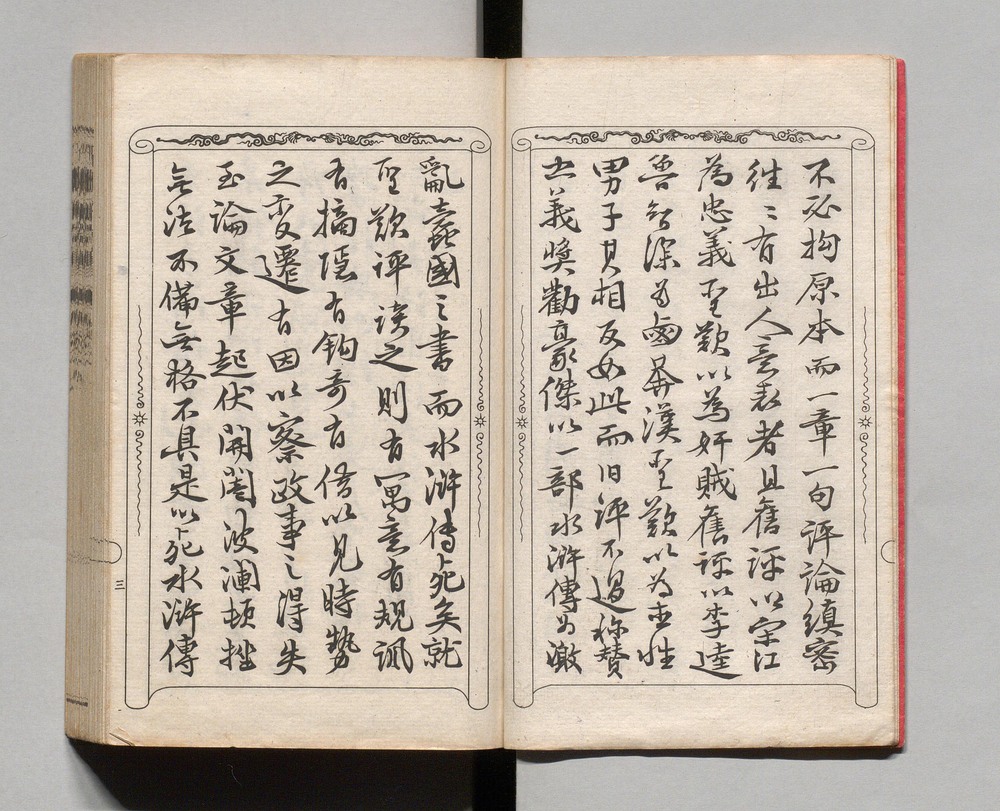 不必拘原本而一章一句評論縝密
往〻有出人意表者且舊評以宋江
為忠義聖歎以為奸賊舊評以李逵
為忠義聖歎以為奸賊舊評以李逵
魯智深為鹵莽漢聖歎以為直性
男子其相反如此而旧評不過称賛
其義奬勸豪傑以一部水滸傳為激
亂蠧國之書而水滸傳死矣就
聖歎評読之則有寓意有規諷
有摘隠有鈎奇有借以見時勢
之変遷有因以察政事之得失
至論文章起伏開闔波瀾頓挫
無法不備無格不具是以死水滸傳
三